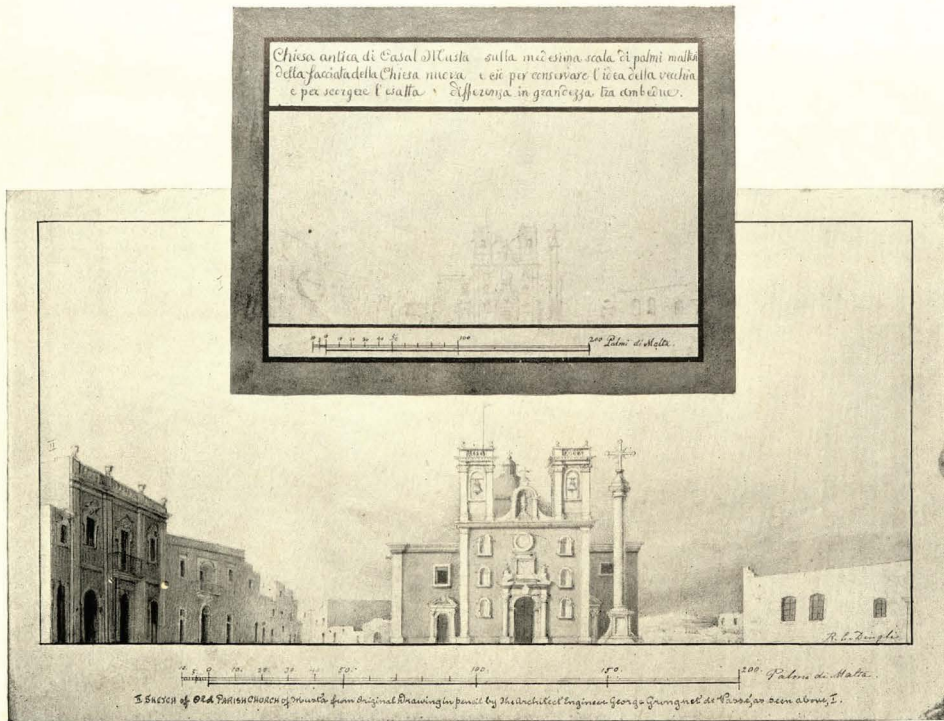 Chiesa antica di Casal Musta sulla medesima scala di palmi maltesi
della facciata della Chiesa nuova e ciò per conservare l'idea della vecchia
e per scorgere l'esatta differenza in grandezza tra ambedue.
10 20 30 40 50 100 200 Palmi di Malta.
II
R. C. Dingli
10 5 0 10 20 30 40 50 100 150 200 Palmi di Malta.
II SKETCH of Old PARISH CHURCH of Musta from Original Drawing in pencil by The Architect Engineer George Grongnet de Vassé, as seen above, I.